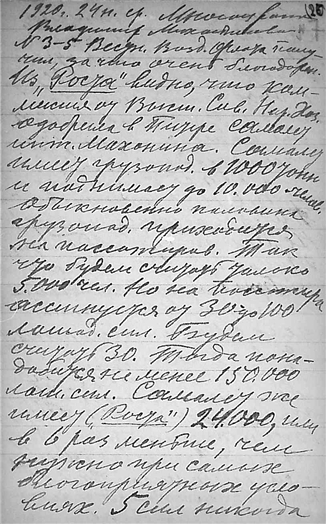 1920. 24 н. ср. Многоуважаем
Владимир Михайлович
N 3-5 Вестн. Возд. Флота полу-
чил, за что очень благодарен.
Из „Роста" видно, что ком-
миссия от Высш. Сов. Нар. Хоз.
одобрила в Тигре самолет
инж. Махонина. Самолет
имеет грузопод. в 1000 тонн
и поднимает до 10.000 челов.
Обыкновенно половина
грузопод. приходится
на пассажиров. Так
что будем считать только
5.000 чел. Но на пассажира
ассигнуется от 30 до 100
лошад. сил. Будем
считать 30. Тогда пона-
добится не менее 150.000
лош. сил. Самолет же
имеет („Роста") 24.000, или
в 6 раз меньше, чем
нужно при самых
благоприятных усло-
виях. 5 сил никогда